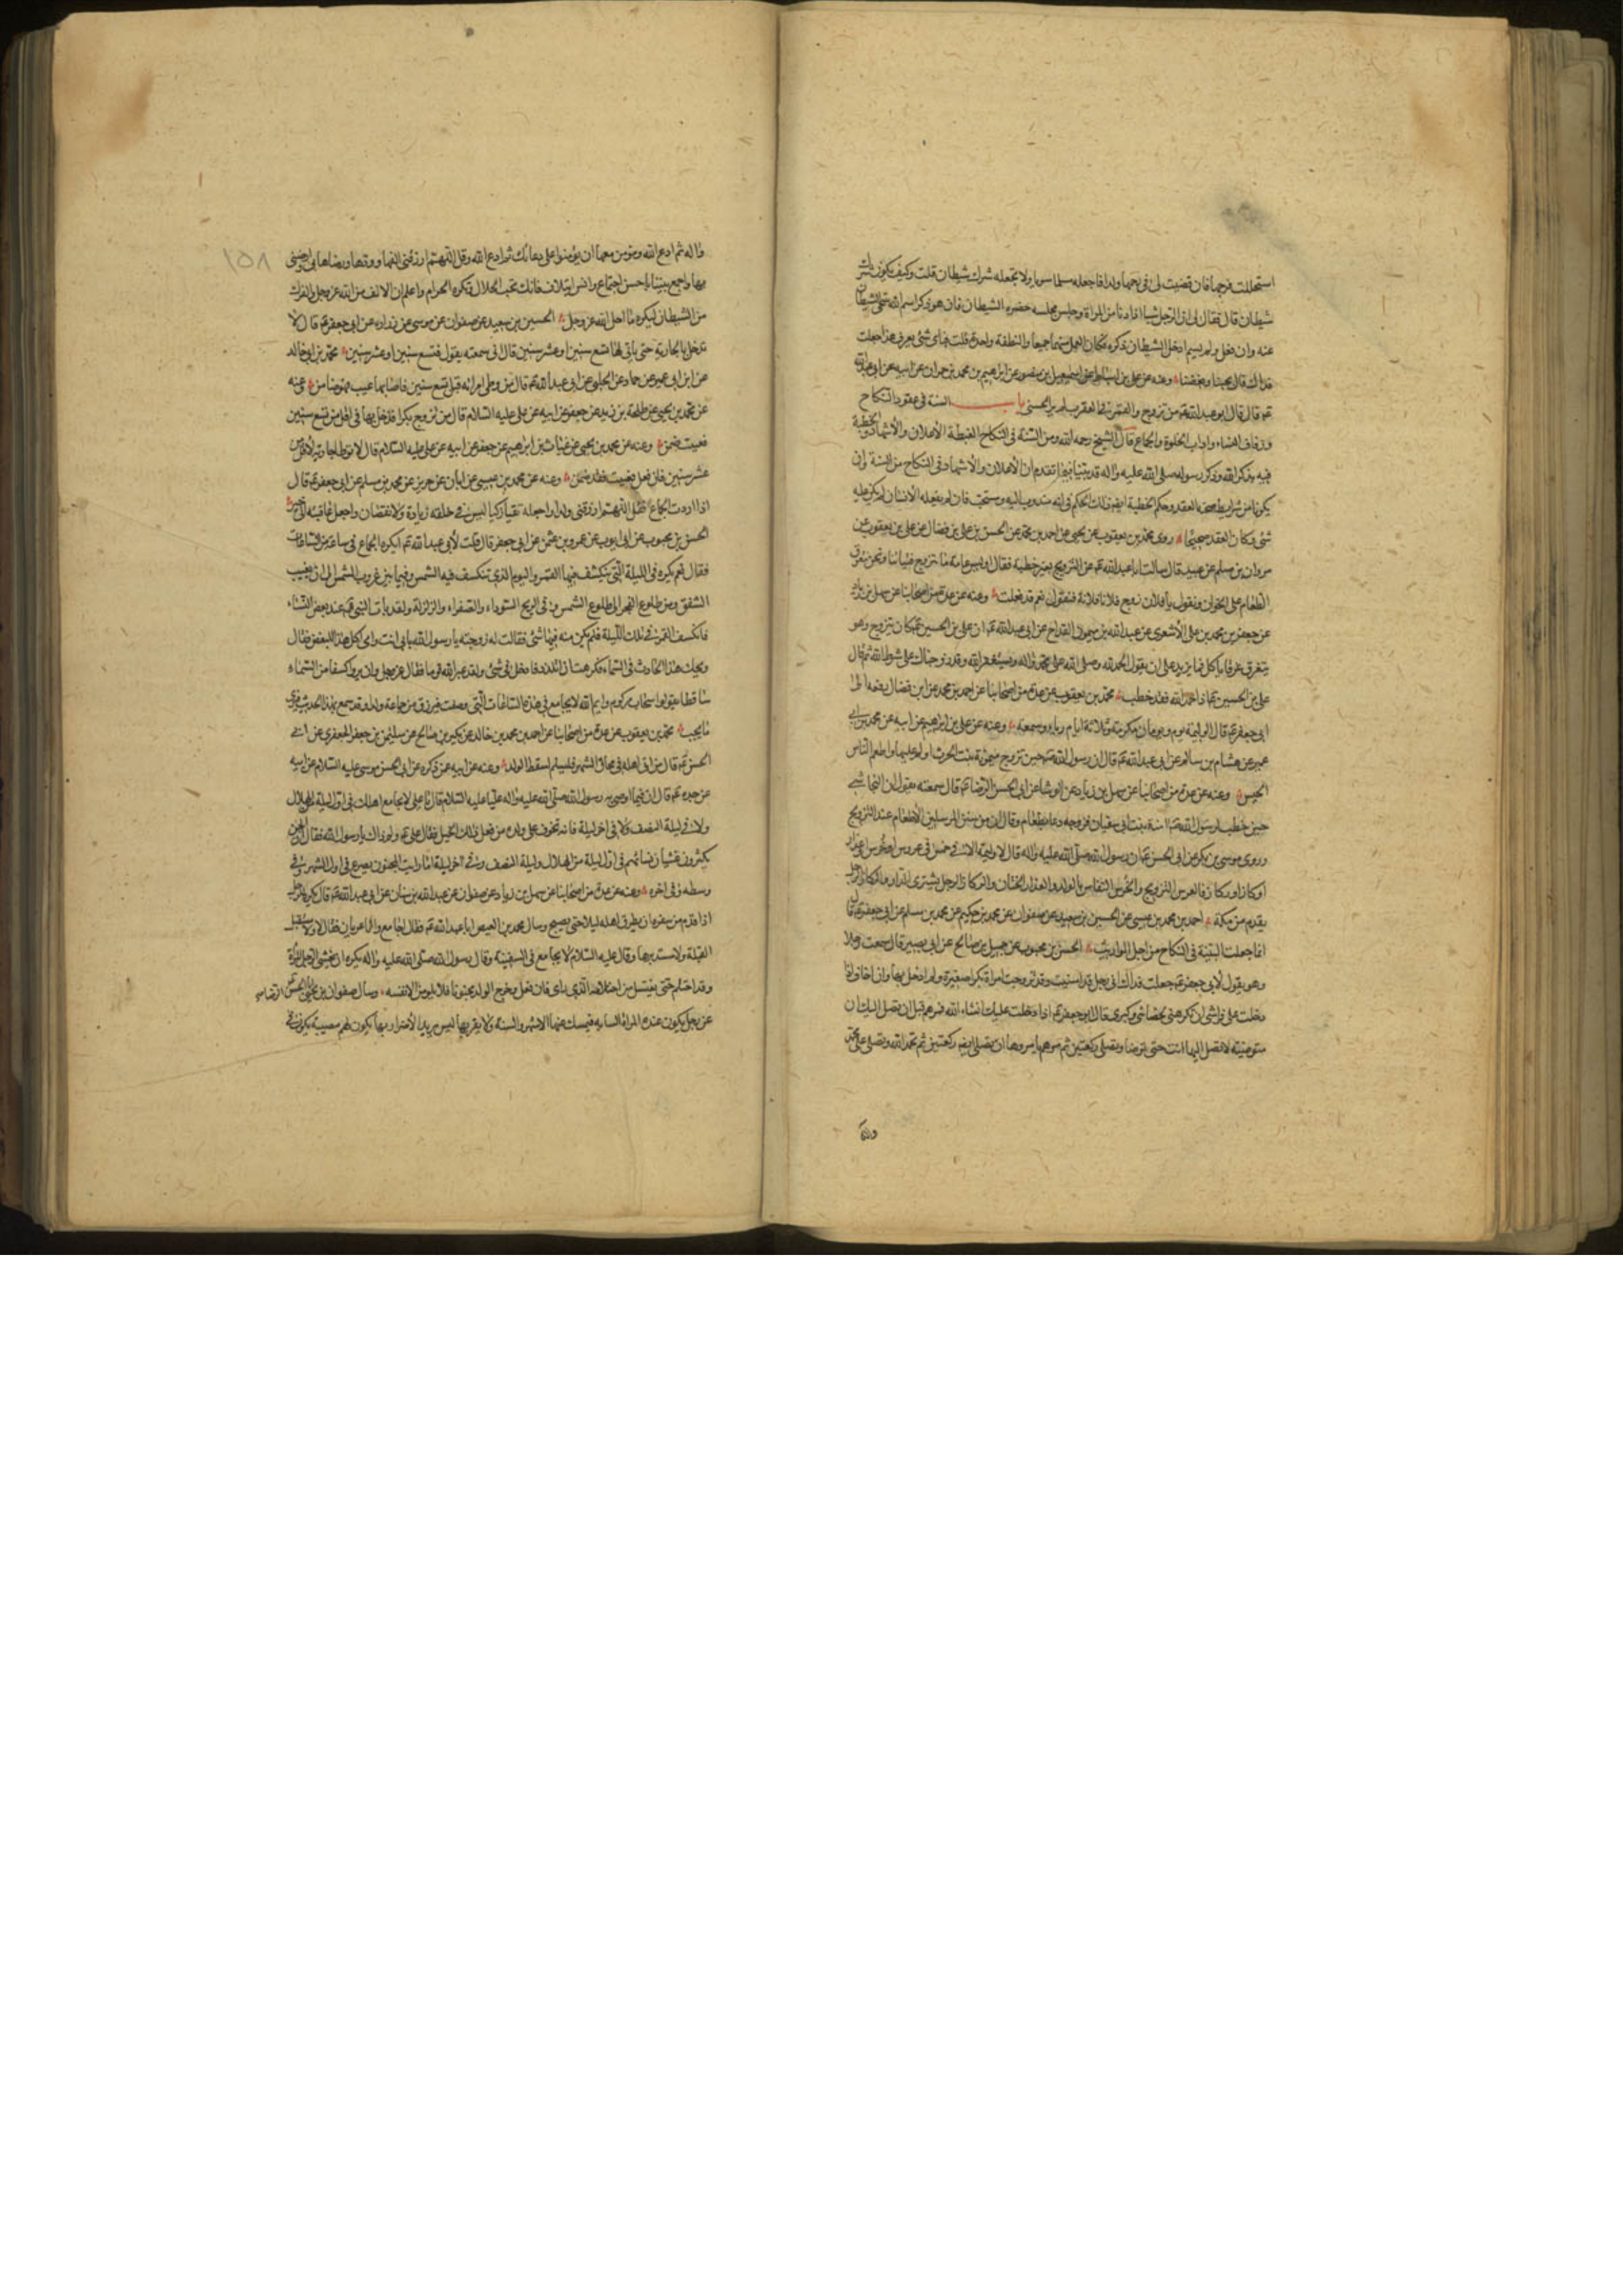 استحللت فرجها فان قضيت لى فى رحمها ولدا فاجعله مسلما سويا ولا تجعله شرك شيطان قلت وكيف يكون شرك
شيطان قال فقال لى ان الرجل اذا دنا من المراة وجلس مجلسه حضره الشيطان فان هو ذكر اسم الله تنحى الشيطان
عنه وان فعل ولم يسم ادخل الشيطان ذكره فكان العمل منهما جميعا والنطفة واحدة قلت فباى شئ يعرف هذا جعلت
فداك قال بحبنا وبغضنا وعنه عن على بن اسباط عن اسمعيل بن منصور عن ابرهيم بن محمد بن حمران عن ابيه عن ابى عبد الله
عم قال قال ابو عبد الله عم من تزوج والقمر فى العقرب لم ير الحسنى باب السنة فى عقود النكاح
وزفاف النساء واداب الخلوة والجماع قال الشيخ رحمه الله ومن السنة فى النكاح الخطبة الاعلان والاشهاد والخطبة
فيه بذكر الله وذكر رسوله صلى الله عليه واله قد بينا فيما تقدم ان الاعلان والاشهاد فى النكاح من السنة وان
يكونا من شرايط صحة العقد وحكم الخطبة ايضا ذلك الحكم فى انه مندوب اليه ومستحب فان لم يفعله الانسان لم يكن عليه
شئ وكان العقد صحيحا روى محمد بن يعقوب عن محمد بن يحيى عن احمد بن محمد عن الحسن بن على بن فضال عن على بن يعقوب عن
مروان بن مسلم عن عبيد قال سالت ابا عبد الله عم عن التزويج بغير خطبة فقال اوليس عامة ما تتزوج فتياننا ونحن نتعرق
الطعام على الخوان ونقول يا فلان زوج فلانا فلانة فنقول نعم قد فعلت وعنه عن عدة من اصحابنا عن سهل بن زياد
عن جعفر بن محمد بن على الاشعرى عن عبد الله بن ميمون القداح عن ابى عبد الله عم ان على بن الحسين عم كان يتزوج وهو
يتعرق عرقا ياكل فما يزيد على ان يقول الحمد لله وصلى الله على محمد واله ويستغفر الله وقد زوجناك على شرط الله ثم قال
على بن الحسين عم اذا حمد الله فقد خطب محمد بن يعقوب عن عدة من اصحابنا عن احمد بن محمد عن ابن فضال رفعه الى
ابى جعفر عم قال الوليمة يوم ويومان مكرمة وثلاثة ايام رياء وسمعه وعنه عن على بن ابرهيم عن ابيه عن محمد بن ابى
عمير عن هشام بن سالم عن ابى عبد الله عم قال ان رسول الله صم حين تزوج ميمونة بنت الحرث اولم عليها واطعم الناس
الحيس وعنه عن عدة من اصحابنا عن سهل بن زياد عن الوشا عن ابى الحسن الرضا عم قال سمعته يقول ان النجاشى
حين خطب لرسول الله صم امنة بنت ابى سفيان فزوجه دعا بطعام وقال ان من سنن المرسلين الاطعام عند التزويج
وروى موسى بن بكر عن ابى الحسن عم ان رسول الله صلى الله عليه واله قال لا وليمة الا فى خمس فى عرس او خرس او عذار
او وكار او ركاز فالعرس التزويج والخرس النفاس بالولد والعذار الختان والوكار الرجل يشترى الدار والركاز الرجل
يقدم من مكة احمد بن محمد بن عيسى عن الحسين بن سعيد عن صفوان عن محمد بن حكيم عن محمد بن مسلم عن ابى جعفر عم قال
انما جعلت البينة فى النكاح من اجل المواريث الحسن بن محبوب عن جميل بن صالح عن ابى بصير قال سمعت رجلا
وهو يقول لابى جعفر عم جعلت فداك انى رجل قد اسنيت وقد تزوجت امراة بكرا صغيرة ولم ادخل بها وانى اخاف اذا
دخلت على فراشى ان تكرهنى لخضابى وكبرى قال ابو جعفر عم اذا دخلت عليك انشاء الله فمرهم قبل ان تصل اليك ان
متوضية لا تصل اليها انت حتى توضا وتصلى ركعتين ثم مرهم يامروها ان تصلى ايضا ركعتين ثم تحمد الله وتصلى على محمد
واله
١٥٨
واله ثم ادع الله ومر من معها ان يؤمنوا على دعائك ثم ادع الله وقل اللهم ارزقنى الفها وودها ورضاها بى وارضنى
بها واجمع بيننا باحسن اجتماع وانس ايتلاف فانك تحب الحلال وتكره الحرام واعلم ان الالف من الله عز وجل والفرك
من الشيطان ليكره ما احل الله عز وجل الحسين بن سعيد عن صفوان عن موسى عن زرارة عن ابى جعفر عم قال لا
تدخل بالجارية حتى ياتى لها تسع سنين او عشر سنين قال انى سمعته يقول تسع سنين او عشر سنين محمد بن ابى خالد
عن ابن ابى عمير عن حماد عن الحلبى عن ابى عبد الله عم قال من وطى امراته قبل تسع سنين فاصابها عيب فهو ضامن وعنه
عن محمد بن يحيى عن طلحة بن زيد عن جعفر عن ابيه عن على عليه السلام قال من تزوج بكرا فدخل بها فى اقل من تسع سنين
فعيبت ضمن وعنه عن محمد بن يحيى عن غياث بن ابرهيم عن جعفر عن ابيه عن على عليه السلام قال لا توطا جارية لاقل من
عشر سنين فان فعل فعيبت فقد ضمن وعنه عن محمد بن عيسى عن ابان عن حريز عن محمد بن مسلم عن ابى جعفر عم قال
اذا اردت الجماع فقل اللهم ارزقنى ولدا واجعله تقيا زكيا ليس فى خلقه زيادة ولا نقصان واجعل عاقبته الى خير
الحسن بن محبوب عن ابى ايوب عن عمرو بن عثمن عن ابى جعفر قال قلت لابى عبد الله عم ايكره الجماع فى ساعة من الساعات
فقال نعم يكره فى الليلة التى ينكسف فيها القمر واليوم الذى تنكسف فيه الشمس وفيما بين غروب الشمس الى ان يغيب
الشفق ومن طلوع الفجر الى طلوع الشمس وفى الريح السوداء والصفراء والزلزلة ولقد بات النبى صم عند بعض النساء
فانكسف القمر فى تلك الليلة فلم يكن منه فيها شئ فقالت له زوجته يا رسول الله بابى انت وامى اكل هذا للبغض فقال
ويحك هذا الحادث فى السماء فكرهت ان اتلذذ فادخل فى شئ ولقد عير الله قوما فقال عز وجل وان يروا كسفا من السماء
ساقطا يقولوا سحاب مركوم وايم الله لا يجامع فى هذه الساعات التى وصفت فيرزق من جماعة ولدا وقد سمع بهذا الحديث فيرى
ما يحب محمد بن يعقوب عن عدة من اصحابنا عن احمد بن محمد بن خالد عن بكر بن صالح عن سليمن بن جعفر الجعفرى عن ابى
الحسن عم قال من اتى اهله فى محاق الشهر فليسلم لسقط الولد وعنه عن ابيه عمن ذكره عن ابى الحسن موسى عليه السلام عن ابيه
عن جده عم قال ان فيما اوصى به رسول الله صلى الله عليه واله عليا عليه السلام قال يا على لا تجامع اهلك فى اول ليلة من الهلال
ولا فى ليلة النصف ولا فى اخر ليلة فانه يتخوف على ولده من فعل ذلك الخبل فقال على عم ولم ذاك يا رسول الله فقال ان الجن
يكثرون غشيان نسائهم فى اول ليلة من الهلال وليلة النصف وفى اخر ليلة اما رايت المجنون يصرع فى اول الشهر وفى
وسطه وفى اخره وعنه عن عدة من اصحابنا عن سهل بن زياد عن صفوان عن عبد الله بن سنان عن ابى عبد الله عم قال يكره للرجل
اذا قدم من سفره ان يطرق اهله ليلا حتى يصبح وسال محمد بن العيص ابا عبد الله عم فقال اجامع وانا عريان فقال لا ولا تستقبل
القبلة ولا تستدبرها وقال عليه السلام لا تجامع فى السفينة وقال رسول الله صلى الله عليه واله يكره ان يغشى الرجل المراة
وقد احتلم حتى يغتسل من احتلامه الذى راى فان فعل وخرج الولد مجنونا فلا يلومن الا نفسه وسال صفوان بن يحيى ابا الحسن الرضا عم
عن رجل يكون عنده المراة الشابة فيمسك عنها الاشهر والسنة ولا يقربها ليس يريد الاضرار بها يكون لهم مصيبة يكون فى